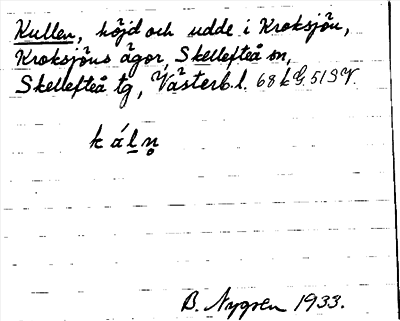 Kullen, höjd och udde i Kroksjön,
Kroksjöns ägor, Skellefteå sn,
Skellefteå tg, Västerb.l. 68 k G. 51 S V.
k á l̲ n̥
B. Nygren 1933.